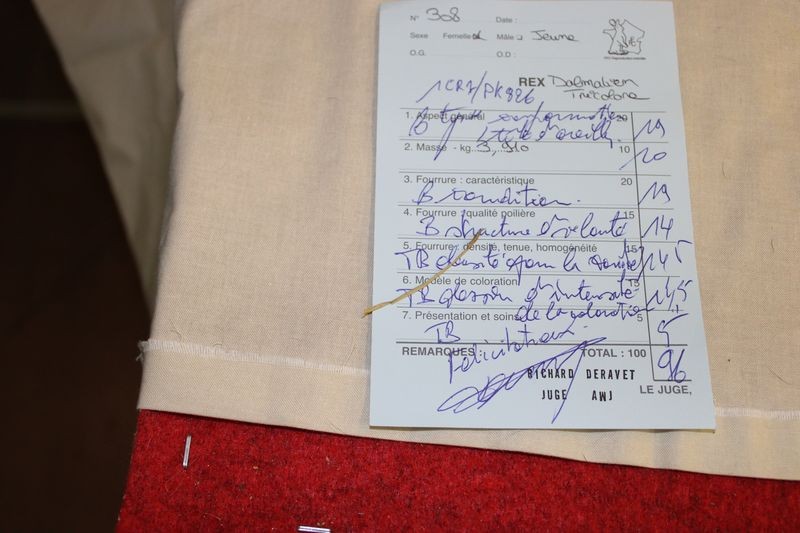 N° 308 Date :
Sexe Femelle Mâle Jeune
O.G. O.D :
REX Dalmatien
Tricolore
1CR7/PK926
1. Aspect général 20 19
B type conformation
tête d'oreille
2. Masse - kg...3,910 10 10
3. Fourrure : caractéristique 20 19
B condition.
4. Fourrure : qualité poilière 15 14
B structure velouté
5. Fourrure: densité, tenue, homogénéité 15 14,5
TB densité
6. Modèle de coloration 15 14,5
TB dessin d'intensité
de la coloration
7. Présentation et soins 5 5
TB
REMARQUES TOTAL : 100 96
Félicitations.
RICHARD DERAVET
JUGE AWJ
LE JUGE,